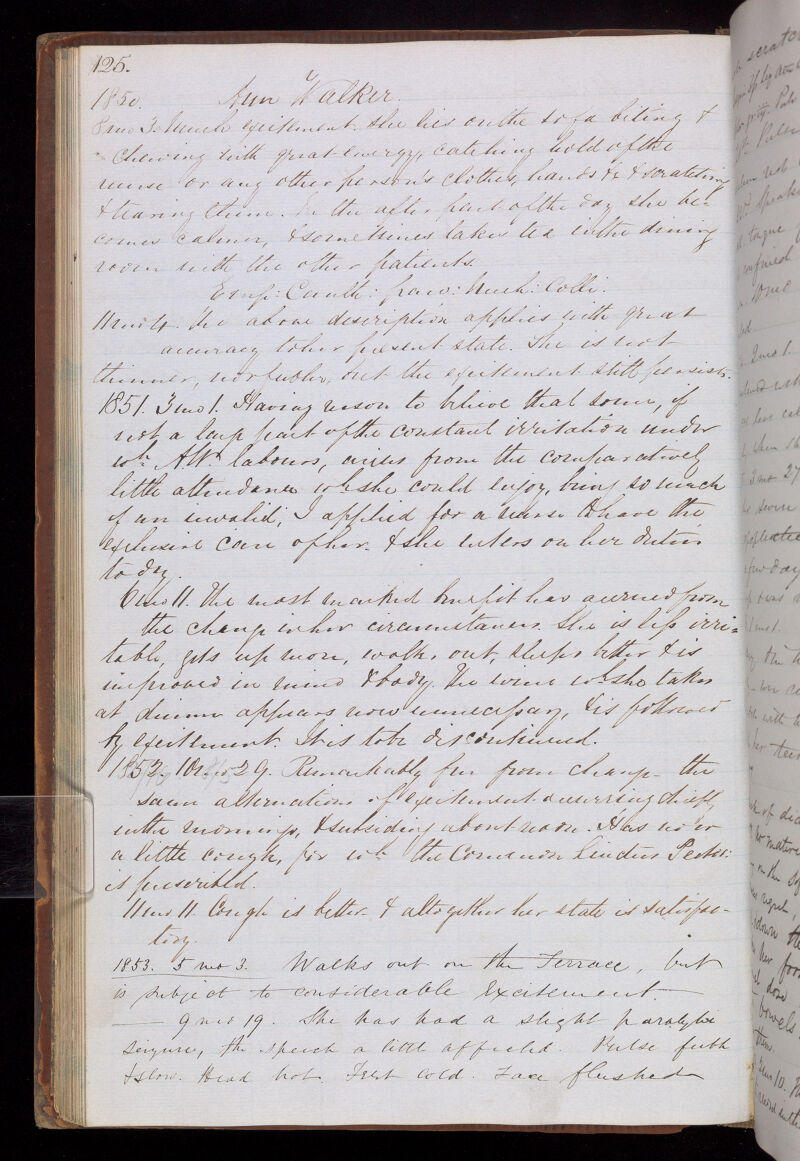 125.
1850. Ann Walker.
8 mo 3. Much excitement. She lies on the sofa biting &
chewing with great energy, catching hold of the
nurse or any other person's clothes, hands &c & scratching
& tearing them. In the after part of the day she be-
comes calmer, & sometimes takes tea in the dining
room with the other patients.
Emp: Canth:
11 mo 4. The above description applies with great
accuracy to her present state. She is not
thinner, nor feebler, but the excitement still persists.
1851. 3 mo 1. Having reason to believe that some, if
not a large part of the constant irritation under
wh. A W. labours, arises from the comparatively
little attendance wh. she could enjoy, being so much
of an invalid, I applied for a nurse to have the
exclusive care of her. & she enters on her duties
to day.
6 mo 11. The most marked benefit has accrued from
the change in her circumstances. She is less irri=
table, gets up more, walks out, sleeps better & is
improved in mind & body. The wine wh. she takes
at dinner appears now unnecessary, & is followed
by excitement. It is to be discontinued.
1852. 10 mo 29. Remarkably free from change - the
same alternations of excitement occurring chiefly
in the mornings, & subsiding about noon. Has now
a little cough, for wh. the Common Linctus
is prescribed.
11 mo 11. Cough is better & altogether her state is satisfac-
tory.
1853. 5 mo 3. Walks out on the Terrace, but
is subject to considerable Excitement.
— 9 mo 19. She has had a slight paralytic
seizure, the speech a little affected. Pulse feeble
& slow. Head hot. Feet cold. Face flushed